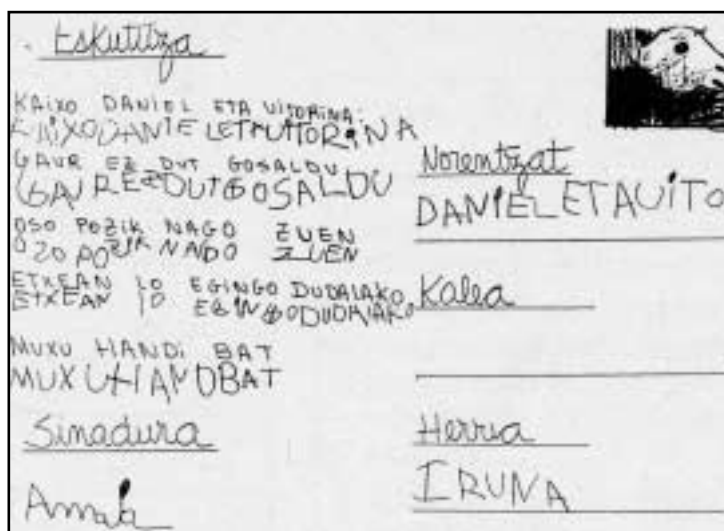 Eskutitza
KAIXO DANIEL ETA VITORINA:
KAIXODANIELETAUITORINA
GAUR EZ DUT GOSALDU
GAUREZDUTGOSALDU
OSO POZIK NAGO ZUEN
OZO POZIK NADO ZUEN
ETXEAN LO EGINGO DUDALAKO
ETXEAN LO EGINGODUDALAKO
MUXU HANDI BAT
MUXUHANDBAT
Sinadura
Norentzat
DANIELETAUITO
Kalea
Herria
IRUNA